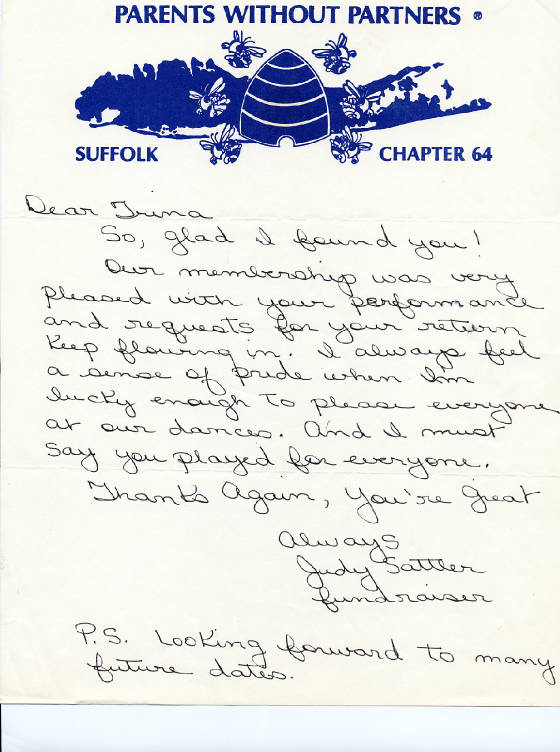 PARENTS WITHOUT PARTNERS ®
SUFFOLK
CHAPTER 64
Dear Trina
So, glad I found you!
Our membership was very
pleased with your performance
and requests for your return
keep flowing in. I always feel
a sense of pride when I'm
lucky enough to please everyone
at our dances. And I must
say you played for everyone.
Thanks Again, You're Great
Always
Judy Sattler
fundraiser
P.S. Looking forward to many
future dates.